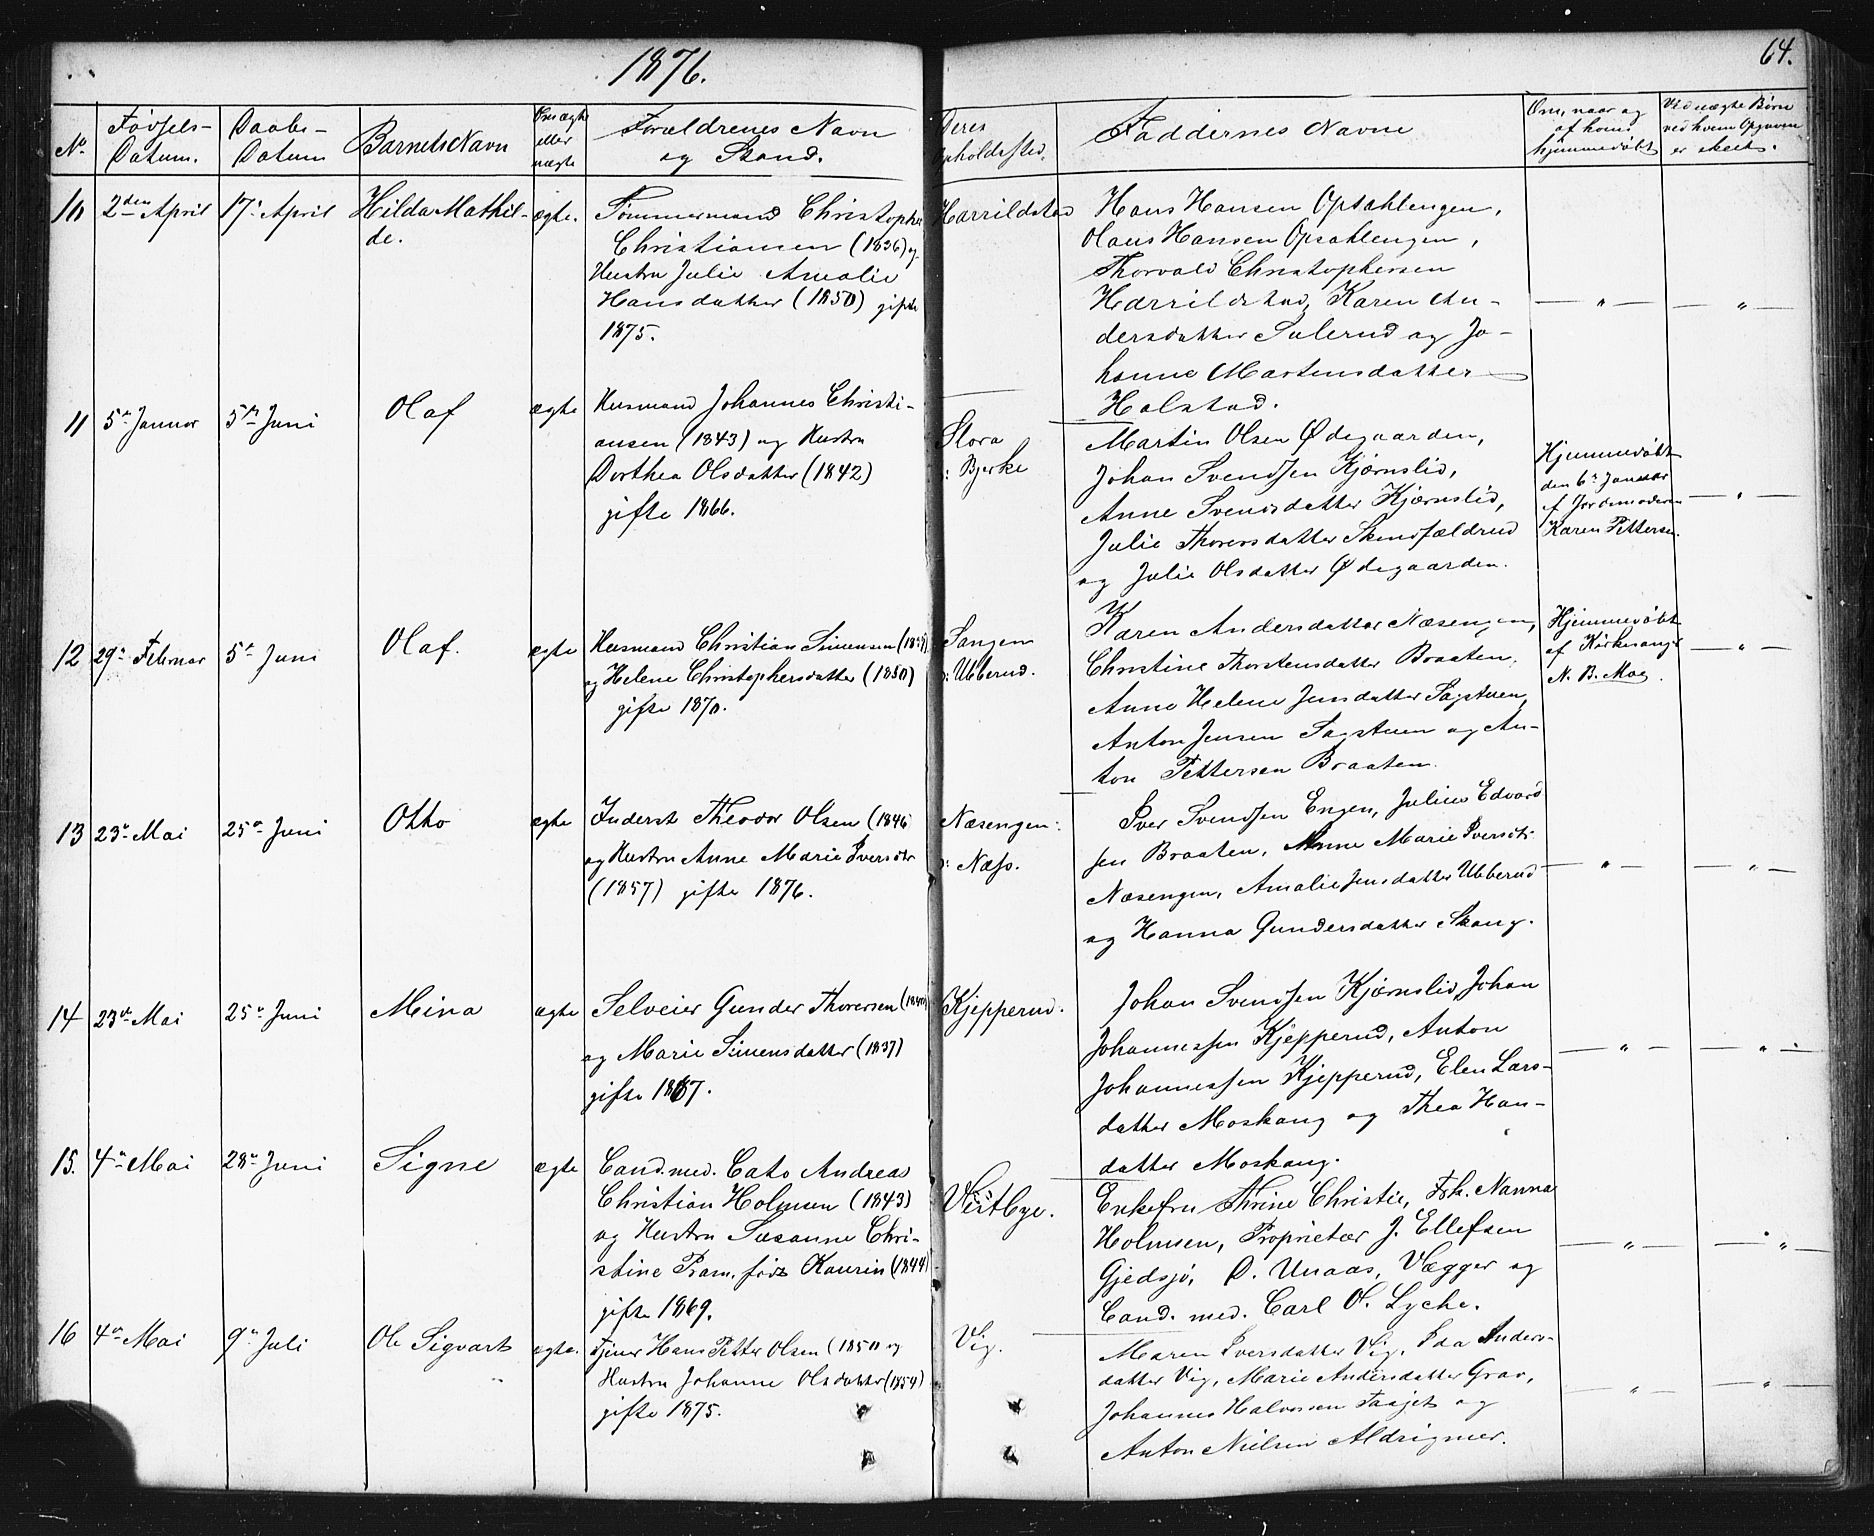 1876.
64.
No.
Fødsels-
Datum.
Daabs-
Datum
Barnets Navn
Om ægte
eller
uægte
Forældrenes Navn
og Stand.
Deres
Opholdssted.
Faddernes Navne
Om, naar og
af hvem
hjemmedøbt
Ved uægte Børn
ved hvem Opgaven
er skeet.
10
2den April
17. April
Hilda Mathil-
de.
ægte.
Tømmermand Christopher
Christiansen (1836) og
Hustru Julie Amalie
Hansdatter (1850) gifte
1875.
Harrildstad
Hans Hansen Opsahlengen,
Olaus Hansen Opsahlengen,
Thorvald Christophersen
Harrildstad, Karen An-
dersdatter Sulerud og Jo-
hanne Martensdatter
Holstad.
— " —
— " —
11
5te Januar
5te Juni
Olaf
ægte
Husmand Johannes Christi-
ansen (1843) og Hustru
Dorthea Olsdatter (1842)
gifte 1866.
Slora
: Bjerke
Martin Olsen Ødegaarden,
Johan Svendsen Kjærnslid,
Anne Svendsdatter Kjærnslid,
Julie Thorersdatter
og Julie Olsdatter Ødegaarden.
Hjemmedøbt
den 6te Januar
af Jordemoderen
Karen Pettersen.
— " —
12
29de Februar
5te Juni
Olaf.
ægte
Husmand Christian Simensen
og Helene Christophersdatter (1850)
gifte 1870.
Sangen
: Ubberud.
Karen Andersdatter Næsengen,
Christine Thorstensdatter Braaten,
Anne Helene Jensdatter Sagstuen,
Anton Jensen Sagstuen og An-
ton Pettersen Braaten.
Hjemmedøbt
af Kirkesanger
N. B. Moe.
— " —
13
23de Mai
25de Juni
Otto
ægte
Inderst Theodor Olsen (1846
og Hustru Anne Marie Iversdtr
(1857) gifte 1876.
Næsengen:
: Næss.
Iver Svendsen Engen, Julius Edvard-
sen Braaten, Anne Marie Iversdtr
Næsengen, Amalie Jensdatter Ubberud
og Hanna Gundersdatter Skaug.
— " —
— " —
14
23de Mai
25de Juni
Mina
ægte
Selveier Gunder Thorersen
og Marie Simensdatter (1837)
gifte 1867.
Kjepperud.
Johan Svendsen Kjærnslid, Johan
Johannessen Kjepperud, Anton
Johannessen Kjepperud, Elen Lars-
datter Moskaug og Thea Han-
datter Moskaug.
— " —
— " —
15.
4de Mai
28de Juni
Signe
ægte
Cand. med. Cato Andreas
Christian Holmsen (1843)
og Hustru Susanne Chri-
stine Pram, fød Kaurin (1844)
gifte 1869.
Vestbye.
Enkefru Thrine Christie, Frk. Nanna
Holmsen, Proprietær J. Ellefsen
Gjedsjø, O. Unaas, Vægger og
Cand. med. Carl O. Lyche.
— " —
— " —
16
4de Mai
9de Juli
Ole Sigvart
ægte.
Tjener Hans Petter Olsen (1850 og
Hustru Johanne Olsdatter (1854)
gifte 1875.
Vig.
Maren Iversdatter Vig, Ida Anders-
datter Vig, Marie Andersdatter Grav,
Johannes Halvorsen Taajet og
Anton Nielsen Aldrigmer.
— " —
— " —